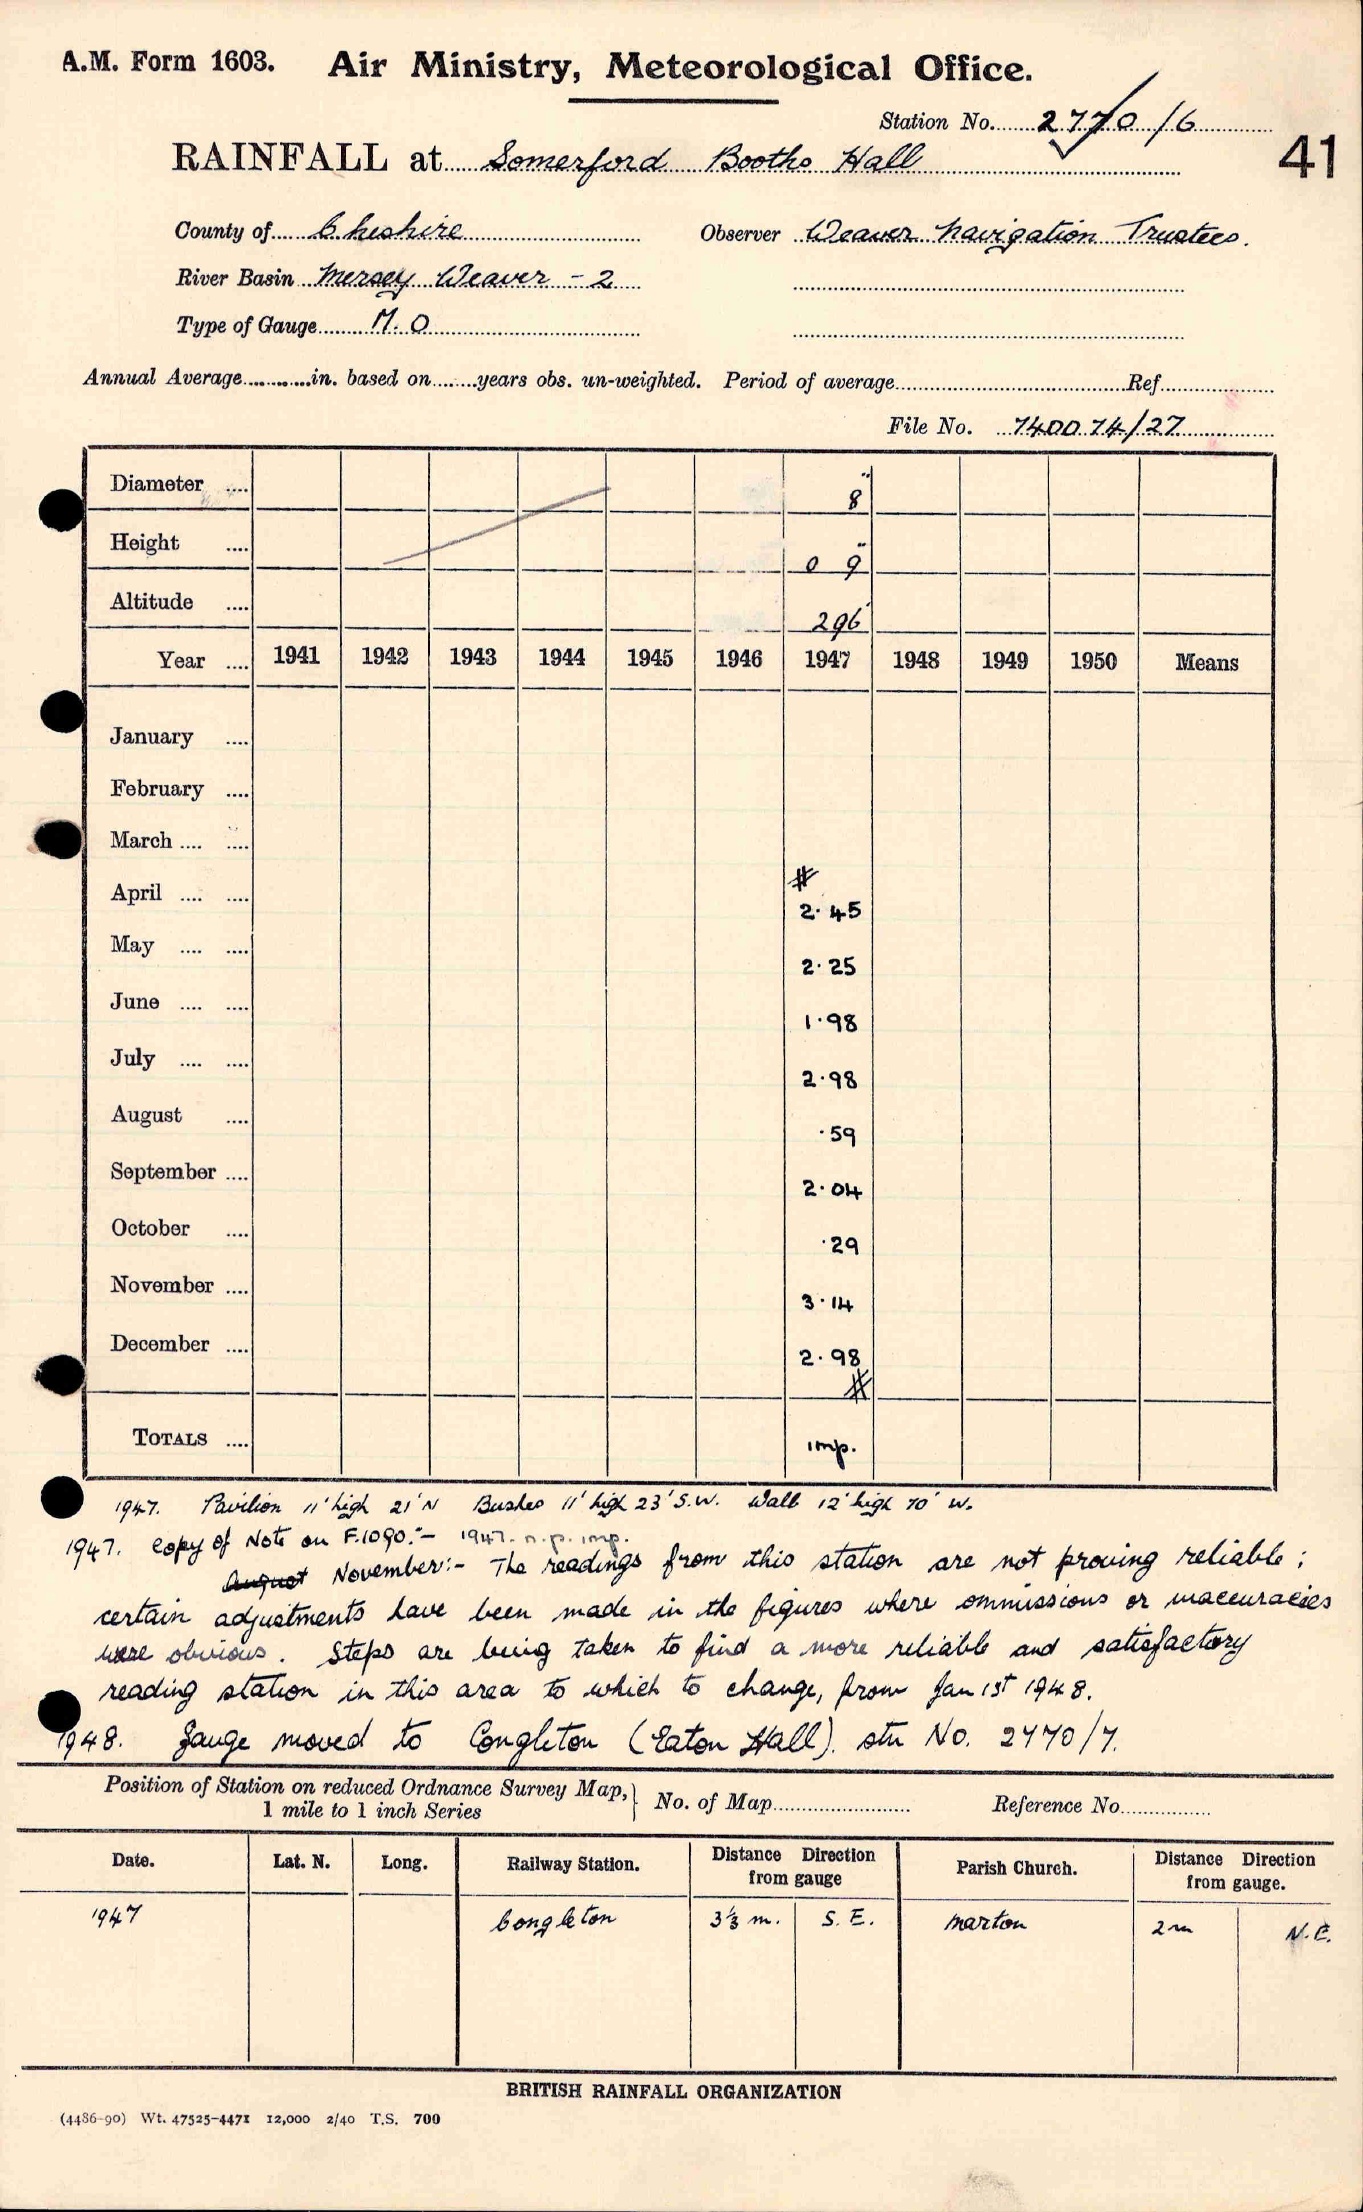 A.M. Form 1603. Air Ministry, Meteorological Office.
Station No. 2770/6
41
RAINFALL at Somerford Booths Hall
County of Cheshire Observer Weaver Navigation Trustees.
River Basin Mersey Weaver - 2
Type of Gauge M.O
Annual Average in. based on years obs. un-weighted. Period of average Ref
File No. 740074/27
Diameter .... 8"
Height .... 0 9"
Altitude .... 296'
Year .... 1941 1942 1943 1944 1945 1946 1947 1948 1949 1950 Means
January ....
February ....
March .... ....
#
April .... .... 2.45
May .... .... 2.25
June .... .... 1.98
July .... .... 2.98
August .... .59
September .... 2.04
October .... .29
November .... 3.14
December .... 2.98
#
TOTALS .... imp.
1947. Pavilion 11' high 21' N Bushes 11' high 23' S.W. Wall 12' high 70' W.
1947. Copy of Note on F.1090:- 1947. n.p. imp.
August November:- The readings from this station are not proving reliable;
certain adjustments have been made in the figures where ommissions or inaccuracies
were obvious. Steps are being taken to find a more reliable and satisfactory
reading station in this area to which to change, from Jan 1st 1948.
1948. Gauge moved to Congleton (Eaton Hall). stn No. 2770/7.
Position of Station on reduced Ordnance Survey Map,
1 mile to 1 inch Series } No. of Map Reference No.
Date. Lat. N. Long. Railway Station. Distance Direction from gauge Parish Church. Distance Direction from gauge.
1947 Congleton 3⅓ m. S.E. Marton 2m N.E.
BRITISH RAINFALL ORGANIZATION
(4486-90) Wt. 47525-4471 12,000 2/40 T.S. 700